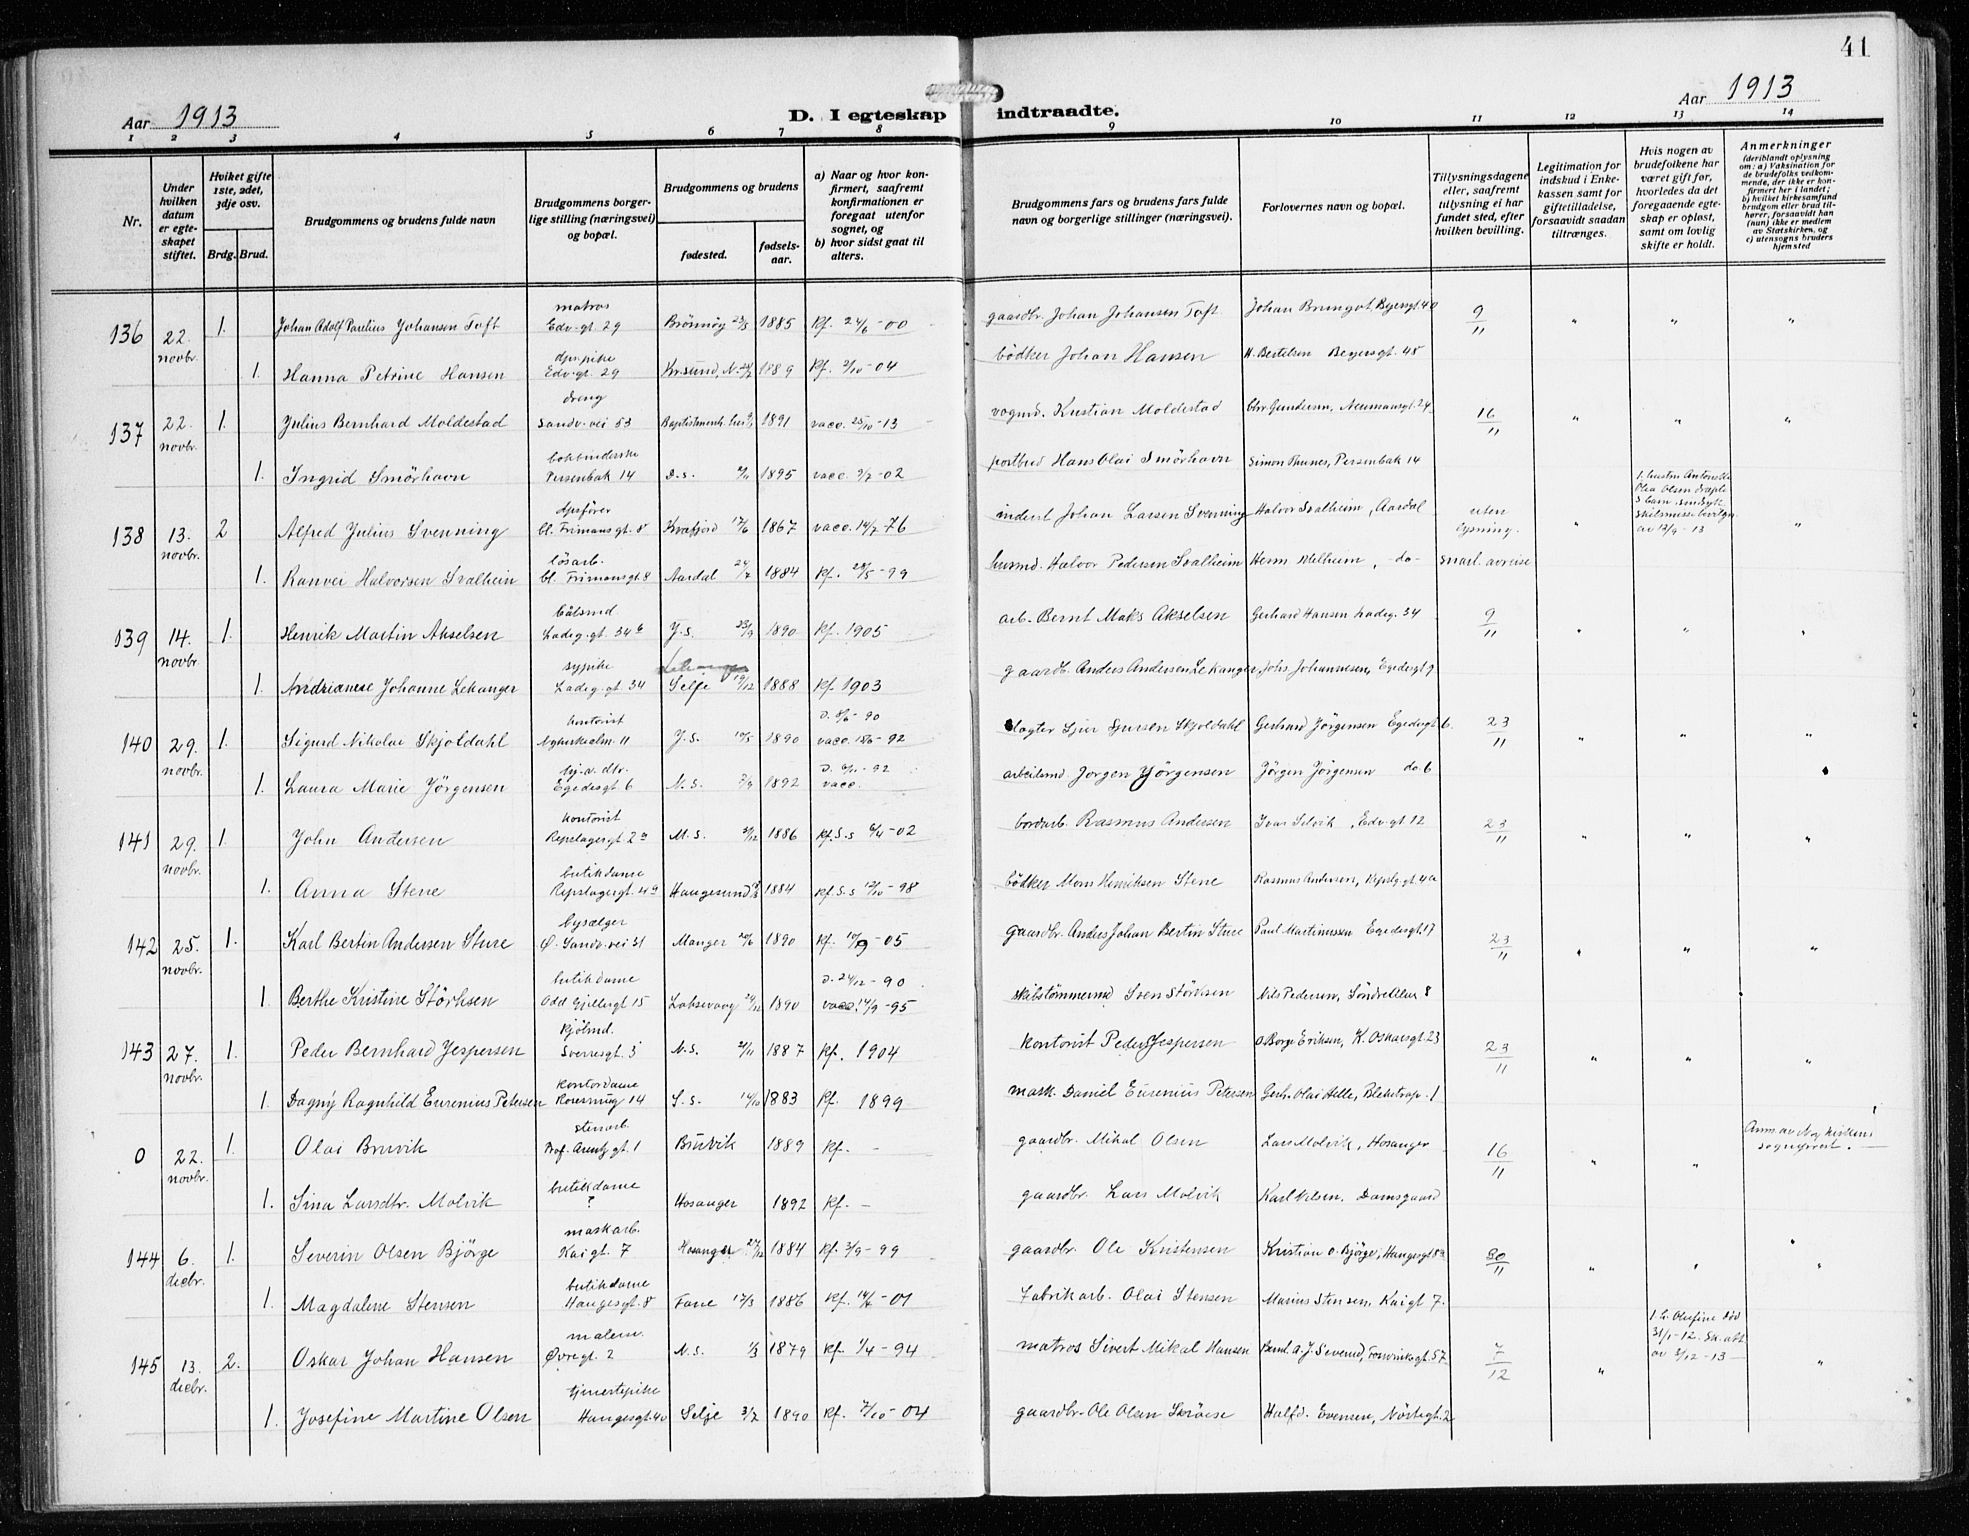 41
Aar 1913
D. I egteskap indtraadte.
Aar 1913
1 2 3 4 5 6 7 8 9 10 11 12 13 14
Nr.
Under hvilken datum er egteskapet stiftet.
Hviket gifte 1ste, 2det, 3dje osv.
Brdg. Brud.
Brudgommens og brudens fulde navn
Brudgommens borgerlige stilling (næringsvei) og bopæl.
Brudgommens og brudens
fødested.
fødselsaar.
a) Naar og hvor konfirmert, saafremt konfirmationen er foregaat utenfor sognet, og
b) hvor sidst gaat til alters.
Brudgommens fars og brudens fars fulde navn og borgerlige stillinger (næringsvei).
Forlovernes navn og bopæl.
Tillysningsdagene eller, saafremt tillysning ei har fundet sted, efter hvilken bevilling.
Legitimation for indskud i Enkekassen samt for giftetilladelse, forsaavidt saadan tiltrænges.
Hvis nogen av brudefolkene har været gift før, hvorledes da det foregaaende egteskap er opløst, samt om lovlig skifte er holdt.
Anmerkninger (deriblandt oplysning om: a) Vaksination for de brudefolks vedkommende, der ikke er konfirmert her i landet; b) hvilket kirkesamfund brudgom eller brud tilhører, forsaavidt han (hun) ikke er medlem av Statskirken, og c) utensogns bruders hjemsted
136 22. novbr. 1. Johan Adolf Parelius Johansen Toft matros Edv. gt. 29 Brönnøy 23/5 1885 Kf. 24/6-00 gaardbr. Johan Johansen Toft Johan Brungot, Byersgt. 40 9/11 " " "
1. Hanna Petrine Hansen Edv. gt. 29 Kr.sund, N. 1889 Kf. 2/10-04 bödker Johan Hansen H. Bertelsen Beyersgt. 45
137 22. novbr. 1. Julius Bernhard Moldestad dreng Sandv. vei 53 1891 vacc. 25/10-13 vognd. Kristian Moldestad Chr. Gundersen, Neumansgt. 24 16/11 " " "
1. Ingrid Smörhavn Persenbak 14 D.s. 1895 vacc. 2/7-02 postbud Hans Olai Smörhavn Simon Thunes, Persenbak 14
138 13. novbr. 2 Alfred Julius Svenning bl. Frimansgt. 8 Kvæfjord 17/6 1867 vacc. 14/7-76 inderst Johan Larsen Svenning Halvor Svalheim, Aardal uten lysning. " 1. hustru Olia Olsen dræpte 3 barn, sindssyk skilsmisse bevilget av 12/9-13 "
1. Ranvei Halvorsen Svalheim lösarb. bl. Frimansgt. 8 Aardal 24/7 1884 Kf. 28/5-99 husmd. Halvor Pedersen Svalheim Herm Melheim, do- snarl. avreise
139 14. novbr. 1. Henrik Martin Akselsen Ladeg. gt. 34 b J.s. 23/9 1890 Kf. 1905 arb. Bernt Maks Akselsen Gerhard Hansen Ladeg. 34 9/11 " " "
1. Andrianese Johanne Lekanger sypike Ladeg. gt. 34 Selje 19/12 1888 Kf. 1903 gaardb. Anders Andersen Lekanger Johs Johannesen, Egedesgt 9
140 29. novbr. 1. Sigurd Nikolai Skjoldahl kontorist Nykirkealm. 11 J.s. 1890 vacc. -92 slagter Sjur Sjursen Skjoldahl Gerhard Jörgensen Egedesgt. 6. 23/11 " " "
1. Laura Marie Jörgensen hj. a. dtr. Egedesgt 6 N.s. 7/9 1892 vacc. arbeidsmd Jorgen Jörgensen Jörgen Jörgensen do. 6
141 29. novbr. 1. John Andersen kontorist Repslagergt. 2 a M.s. 1886 Kf. S.s -02 bordarb. Rasmus Andersen Ivar Selvik, Edv. gt 12 23/11 " " "
1. Anna Stene butikdame Repslagergt. 4 a Haugesund 1884 Kf. S.s 12/10-98 bödker Mons Henriksen Stene Rasmus Andersen, Repslg. gt. 4 a
142 25. novbr. 1. Karl Bertin Andersen Sture bysælger Ø. Sandv. vei 31 Manger 20/6 1890 Kf. -05 gaardbr. Anders Johan Bertin Sture Paul Martinussen Egedesgt. 17 23/11 " " "
1. Berthe Kristine Störksen butikdame Odd Gjellersgt 15 Laksevaag 1890 d. 24/12-90 vacc. 14/9-95 skibstömmermd Sven Störksen Nils Pedersen, Söndre Allee 8
143 27. novbr. 1. Peder Bernhard Jespersen Sverresgt. 5 N.s. 1887 Kf. 1904 kontorist Peder Jespersen O. Borge Eriksen, K. Oskarsgt 23 23/11 " " "
1. Dagny Ragnhild Eusenius Petersen kontordame Rosesmug 14 S.s. 14/10 1883 Kf. 1899 mask. Daniel Eusenius Petersen Gerh. Olai Helle, Bleketrap. 1
0 22. novbr. 1. Olai Bruvik stenarb. Prof. Arentz gt. 1 Bruvik 1889 Kf. - gaardbr. Mikal Olsen Lars Molvik, Hosanger 16/11 " " Anm av Nykirkens sogneprest.
1. Sina Larsdtr. Molvik butikdame ? Hosanger 1892 Kf. - gaardbr. Lars Molvik Karl Nilsen. Damsgaard
144 6. decbr. 1. Severin Olsen Bjørge maskarb. Kaigt. 7 Hosanger 27/12 1884 Kf. 3/9-99 gaardbr. Ole Kristensen Kristian O. Bjørge, Haugesgt 8 a 30/11 " " "
1. Magdalene Stensen butikdame Haugesgt. 8 Fane 17/3 1886 Kf. 14/4-01 Fabrikarb. Olai Stensen Marius Stensen, Kaigt 7.
145 13. decbr. 2. Oskar Johan Hansen malem. Øvregt. 2 N.s. 1/3 1879 Kf. 1/4-94 matros Sivert Mikal Hansen Bernt A. J. Severud, 57 7/12 " 1. h. Olufine död 31/1-12. Sk. att av 3/12-13 "
1. Josefine Martine Olsen tjenestepike Haugesgt. 40 Selje 3/7 1890 Kf. 2/10-04 gaardbr. Ole Olsen Skröse Halfd. Evensen, Nöstegt. 2